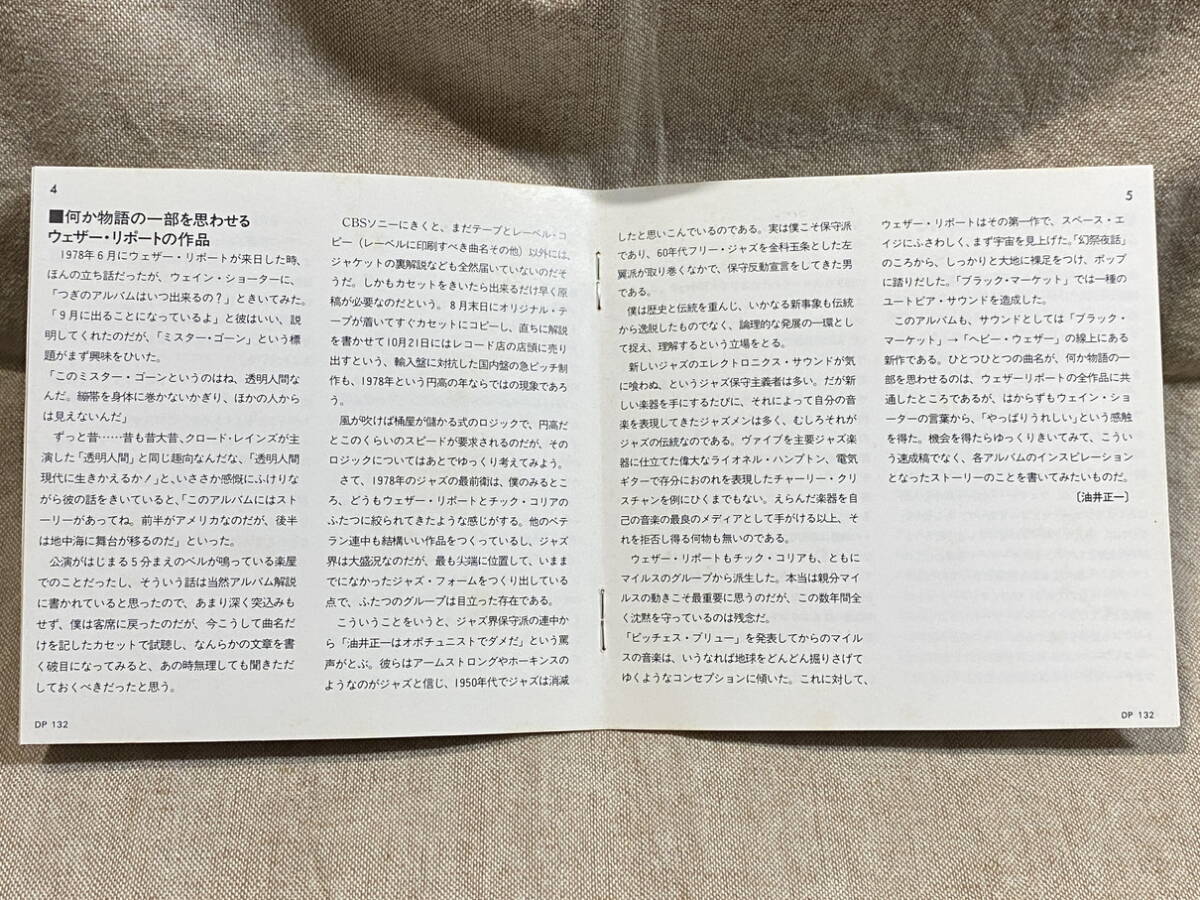 4
■何か物語の一部を思わせる
ウェザー・リポートの作品
1978年6月にウェザー・リポートが来日した時、
ほんの立ち話だったが、ウェイン・ショーターに、
「つぎのアルバムはいつ出来るの?」ときいてみた。
「9月に出ることになっているよ」と彼はいい、説
明してくれたのだが、「ミスター・ゴーン」という標
題がまず興味をひいた。
「このミスター・ゴーンというのはね、透明人間な
んだ。繃帯を身体に巻かないかぎり、ほかの人から
は見えないんだ」
ずっと昔……昔も昔大昔、クロード・レインズが主
演した「透明人間」と同じ趣向なんだな、「透明人間
現代に生きかえるか!」と、いささか感慨にふけりな
がら彼の話をきいていると、「このアルバムにはスト
ーリーがあってね。前半がアメリカなのだが、後半
は地中海に舞台が移るのだ」といった。
公演がはじまる5分まえのベルが鳴っている楽屋
でのことだったし、そういう話は当然アルバム解説
に書かれていると思ったので、あまり深く突込みも
せず、僕は客席に戻ったのだが、今こうして曲名だ
けを記したカセットで試聴し、なんらかの文章を書
く破目になってみると、あの時無理しても聞きただ
しておくべきだったと思う。
DP 132
CBSソニーにきくと、まだテープとレーベル・コ
ピー(レーベルに印刷すべき曲名その他)以外には、
ジャケットの裏解説なども全然届いていないのだそ
うだ。しかもカセットをきいたら出来るだけ早く原
稿が必要なのだという。8月末日にオリジナル・テ
ープが着いてすぐカセットにコピーし、直ちに解説
を書かせて10月21日にはレコード店の店頭に売り
出すという、輸入盤に対抗した国内盤の急ピッチ制
作も、1978年という円高の年ならではの現象であろ
う。
風が吹けば桶屋が儲かる式のロジックで、円高だ
とこのくらいのスピードが要求されるのだが、その
ロジックについてはあとでゆっくり考えてみよう。
さて、1978年のジャズの最前衛は、僕のみるとこ
ろ、どうもウェザー・リポートとチック・コリアの
ふたつに絞られてきたような感じがする。他のベテ
ラン連中も結構いい作品をつくっているし、ジャズ
界は大盛況なのだが、最も尖端に位置して、いまま
でになかったジャズ・フォームをつくり出している
点で、ふたつのグループは目立った存在である。
こういうことをいうと、ジャズ界保守派の連中か
ら「油井正一はオポチュニストでダメだ」という罵
声がとぶ。彼らはアームストロングやホーキンスの
ようなのがジャズと信じ、1950年代でジャズは消滅
5
したと思いこんでいるのである。実は僕こそ保守派
であり、60年代フリー・ジャズを金科玉条とした左
翼派が取り巻くなかで、保守反動宣言をしてきた男
である。
僕は歴史と伝統を重んじ、いかなる新事象も伝統
から逸脱したものでなく、論理的な発展の一環とし
て捉え、理解するという立場をとる。
新しいジャズのエレクトロニクス・サウンドが気
に喰わぬ、というジャズ保守主義者は多い。だが新
しい楽器を手にするたびに、それによって自分の音
楽を表現してきたジャズメンは多く、むしろそれが
ジャズの伝統なのである。ヴァイブを主要ジャズ楽
器に仕立てた偉大なライオネル・ハンプトン、電気
ギターで存分におのれを表現したチャーリー・クリ
スチャンを例にひくまでもない。えらんだ楽器を自
己の音楽の最良のメディアとして手がける以上、そ
れを拒否し得る何物も無いのである。
ウェザー・リポートもチック・コリアも、ともに
マイルスのグループから派生した。本当は親分マイ
ルスの動きこそ最重要に思うのだが、この数年間全
く沈黙を守っているのは残念だ。
「ビッチェス・ブリュー」を発表してからのマイル
スの音楽は、いうなれば地球をどんどん掘りさげて
ゆくようなコンセプションに傾いた。これに対して、
ウェザー・リポートはその第一作で、スペース・エ
イジにふさわしく、まず宇宙を見上げた。「幻祭夜話」
のころから、しっかりと大地に裸足をつけ、ポップ
に踊りだした。「ブラック・マーケット」では一種の
ユートピア・サウンドを造成した。
このアルバムも、サウンドとしては「ブラック・
マーケット」→「ヘビー・ウェザー」の線上にある
新作である。ひとつひとつの曲名が、何か物語の一
部を思わせるのは、ウェザーリポートの全作品に共
通したところであるが、はからずもウェイン・ショ
ーターの言葉から、「やっぱりうれしい」という感触
を得た。機会を得たらゆっくりきいてみて、こうい
う速成稿でなく、各アルバムのインスピレーション
となったストーリーのことを書いてみたいものだ。
〔油井正一〕
DP 132